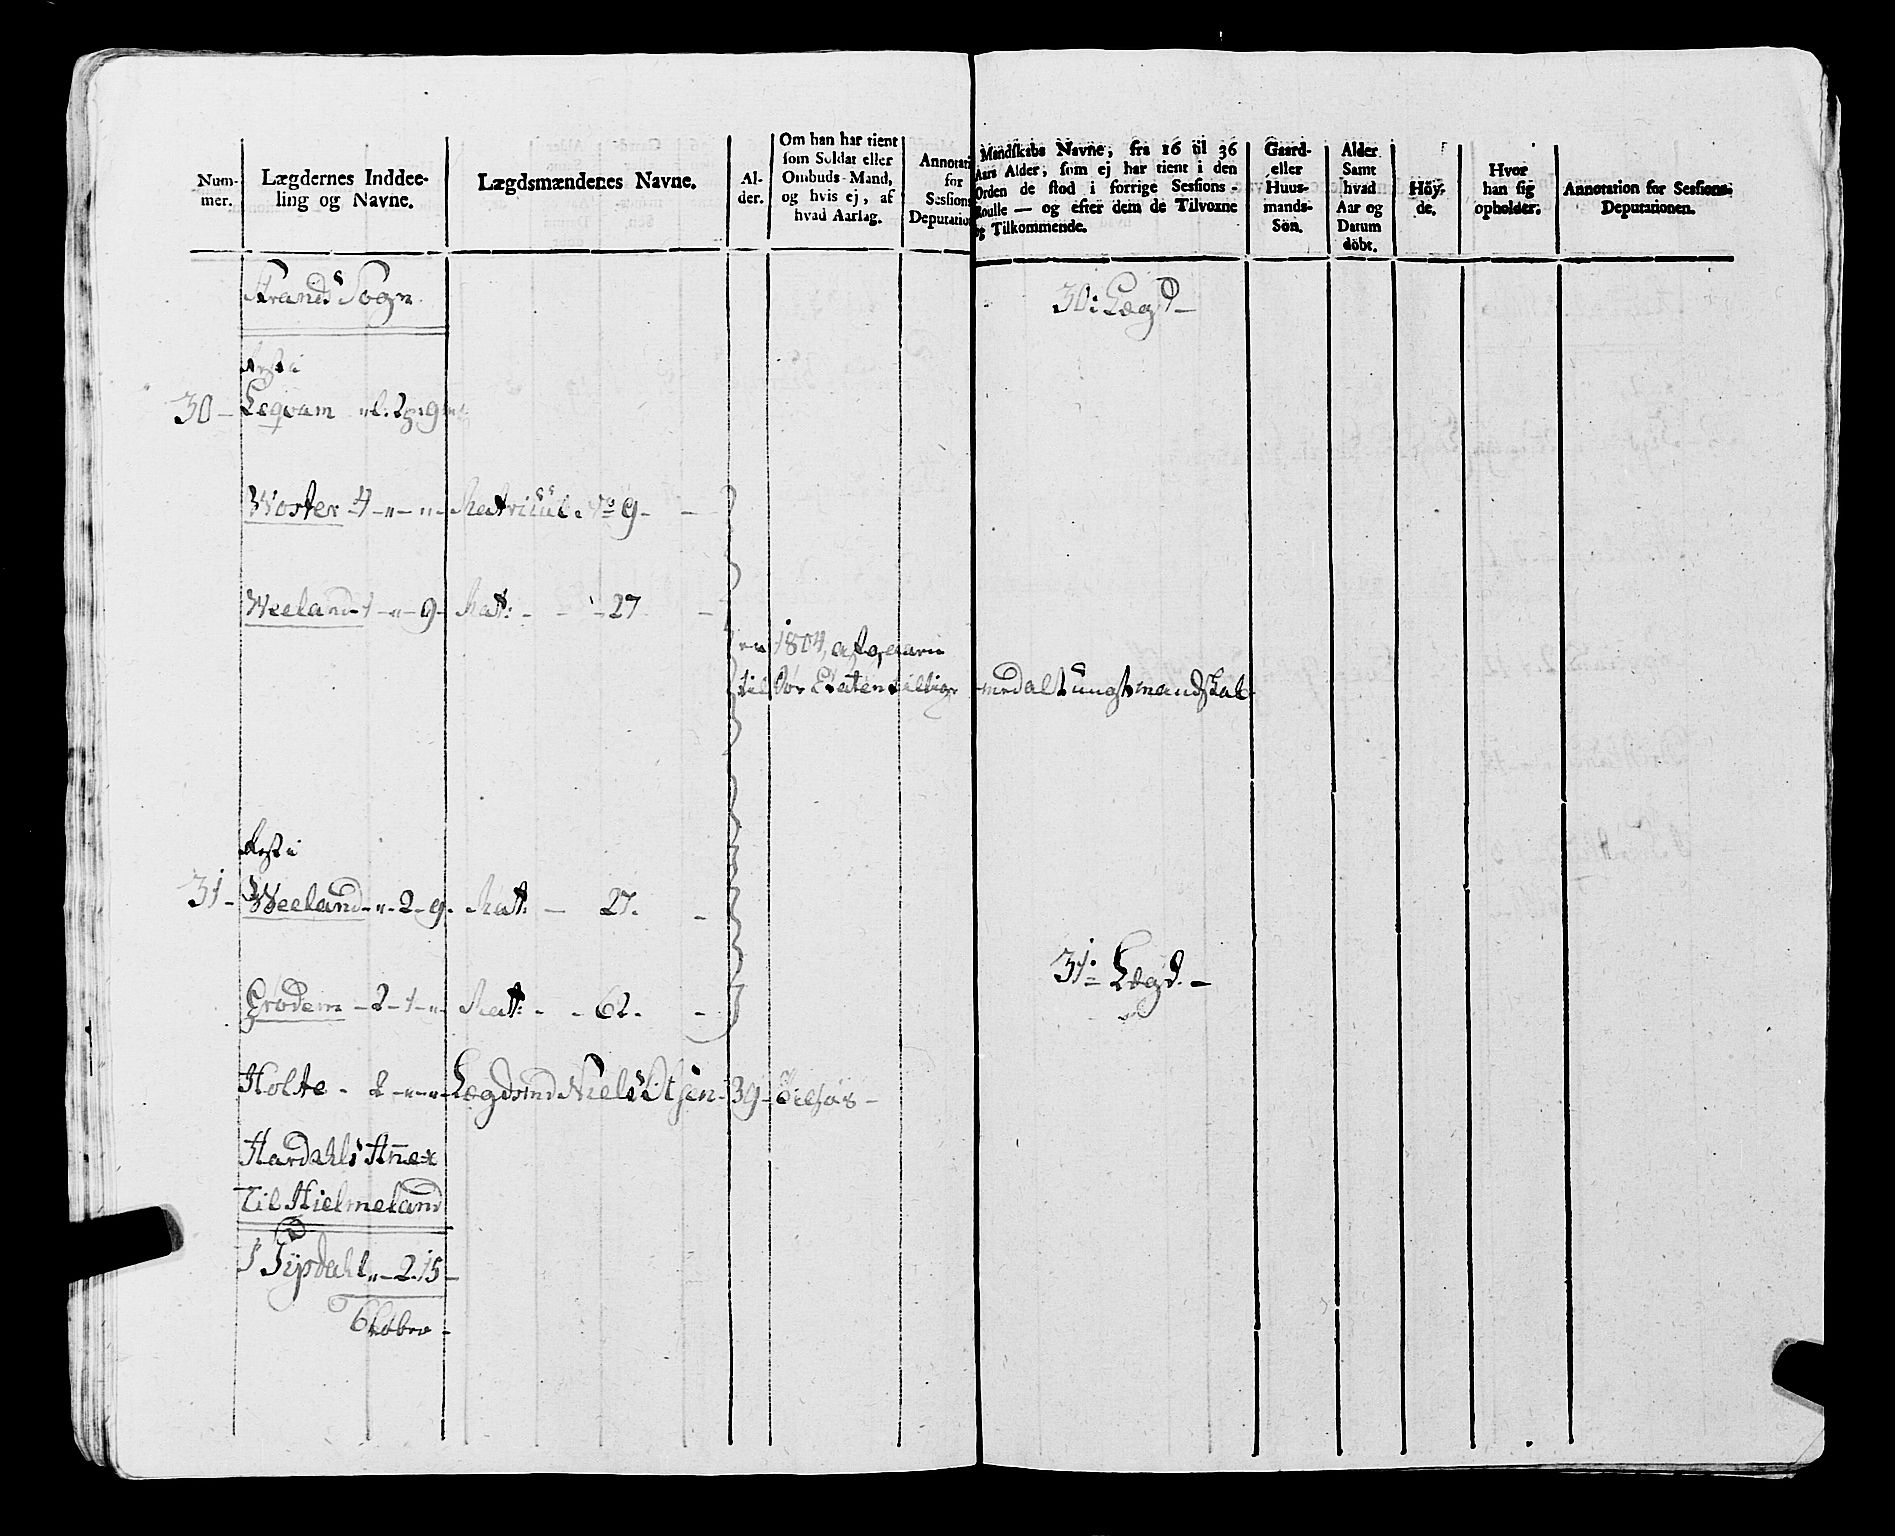 Num-
mer.
Lægdernes Inddee-
ling og Navne.
Lægdsmændenes Navne.
Al-
der.
Om han har tient
som Soldat eller
Ombuds-Mand,
og hvis ej, af
hvad Aarsag.
Annotati
for
Sessions
Deputation
Mandskabs Navne, fra 16 til 36
Aars Alder, som ej har tient i den
Orden de stod i forrige Sessions-
Roulle — og efter dem de Tilvoxne
og Tilkommende.
Gaard-
eller
Huus-
mands-
Sön.
Alder
Samt
hvad
Aar og
Datum
döbt.
Höy-
de.
Hvor
han sig
opholder.
Annotation for Sessions-
Deputationen.
Strands Sogn
30: Lægd —
Rest i
30 — Leqvam
Woster 4 — " — " — Matricul No 9 —
Weeland 1 — " — 9 — Mat: — 27 —
1804
til Söe Etaten tillige med alt ungt mandskab
Rest i
31 — Weeland — " — 2 — 9. Mat: — 27. —
31: Lægd. —
Grödem — 2 — 1 — " — Mat: — 62. —
Holte — 2 — " — " — Lægdsmd Niels Olsen — 39 —
Aardahls Annex
Til Hielmeland
" — 2. 15 —